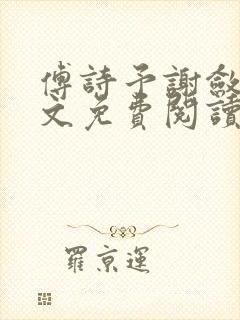 傅詩予謝斂
文免費閱讀
羅京運